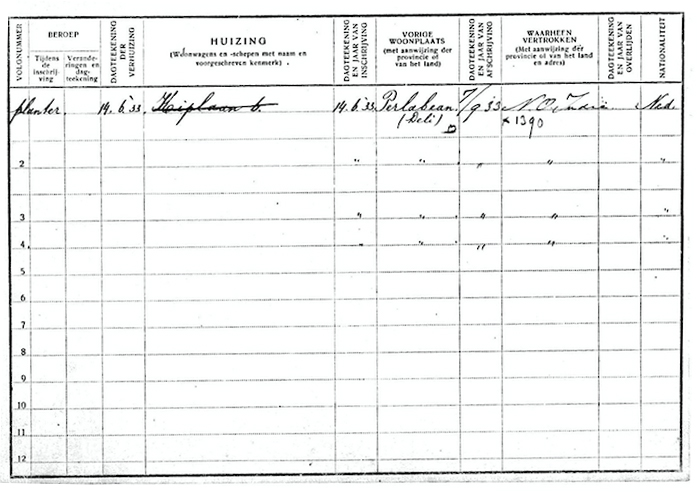 VOLGNUMMER
BEROEP
Tijdens de inschrijving
Veranderingen en dagteekening
DAGTEEKENING DER VERHUIZING
HUIZING
(Woonwagens en -schepen met naam en voorgeschreven kenmerk)
DAGTEEKENING EN JAAR VAN INSCHRIJVING
VORIGE WOONPLAATS
(met aanwijzing der provincie of van het land)
DAGTEEKENING EN JAAR VAN AFSCHRIJVING
WAARHEEN VERTROKKEN
(Met aanwijzing der provincie of van het land en adres)
DAGTEEKENING EN JAAR VAN OVERLIJDEN
NATIONALITEIT
planter. 14.6.'33. 14.6.'33 Perlabean. 7/9 '33 N.O. Indië Ned.
(Deli) × 1390
2 " " " " "
3 " " " " "
4 " " " " "
5
6
7
8
9
10
11
12